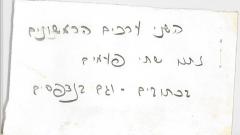 השני ערכים הראשונים
נתנו שתי פעמים
בכתובים - וגם בנדפסים